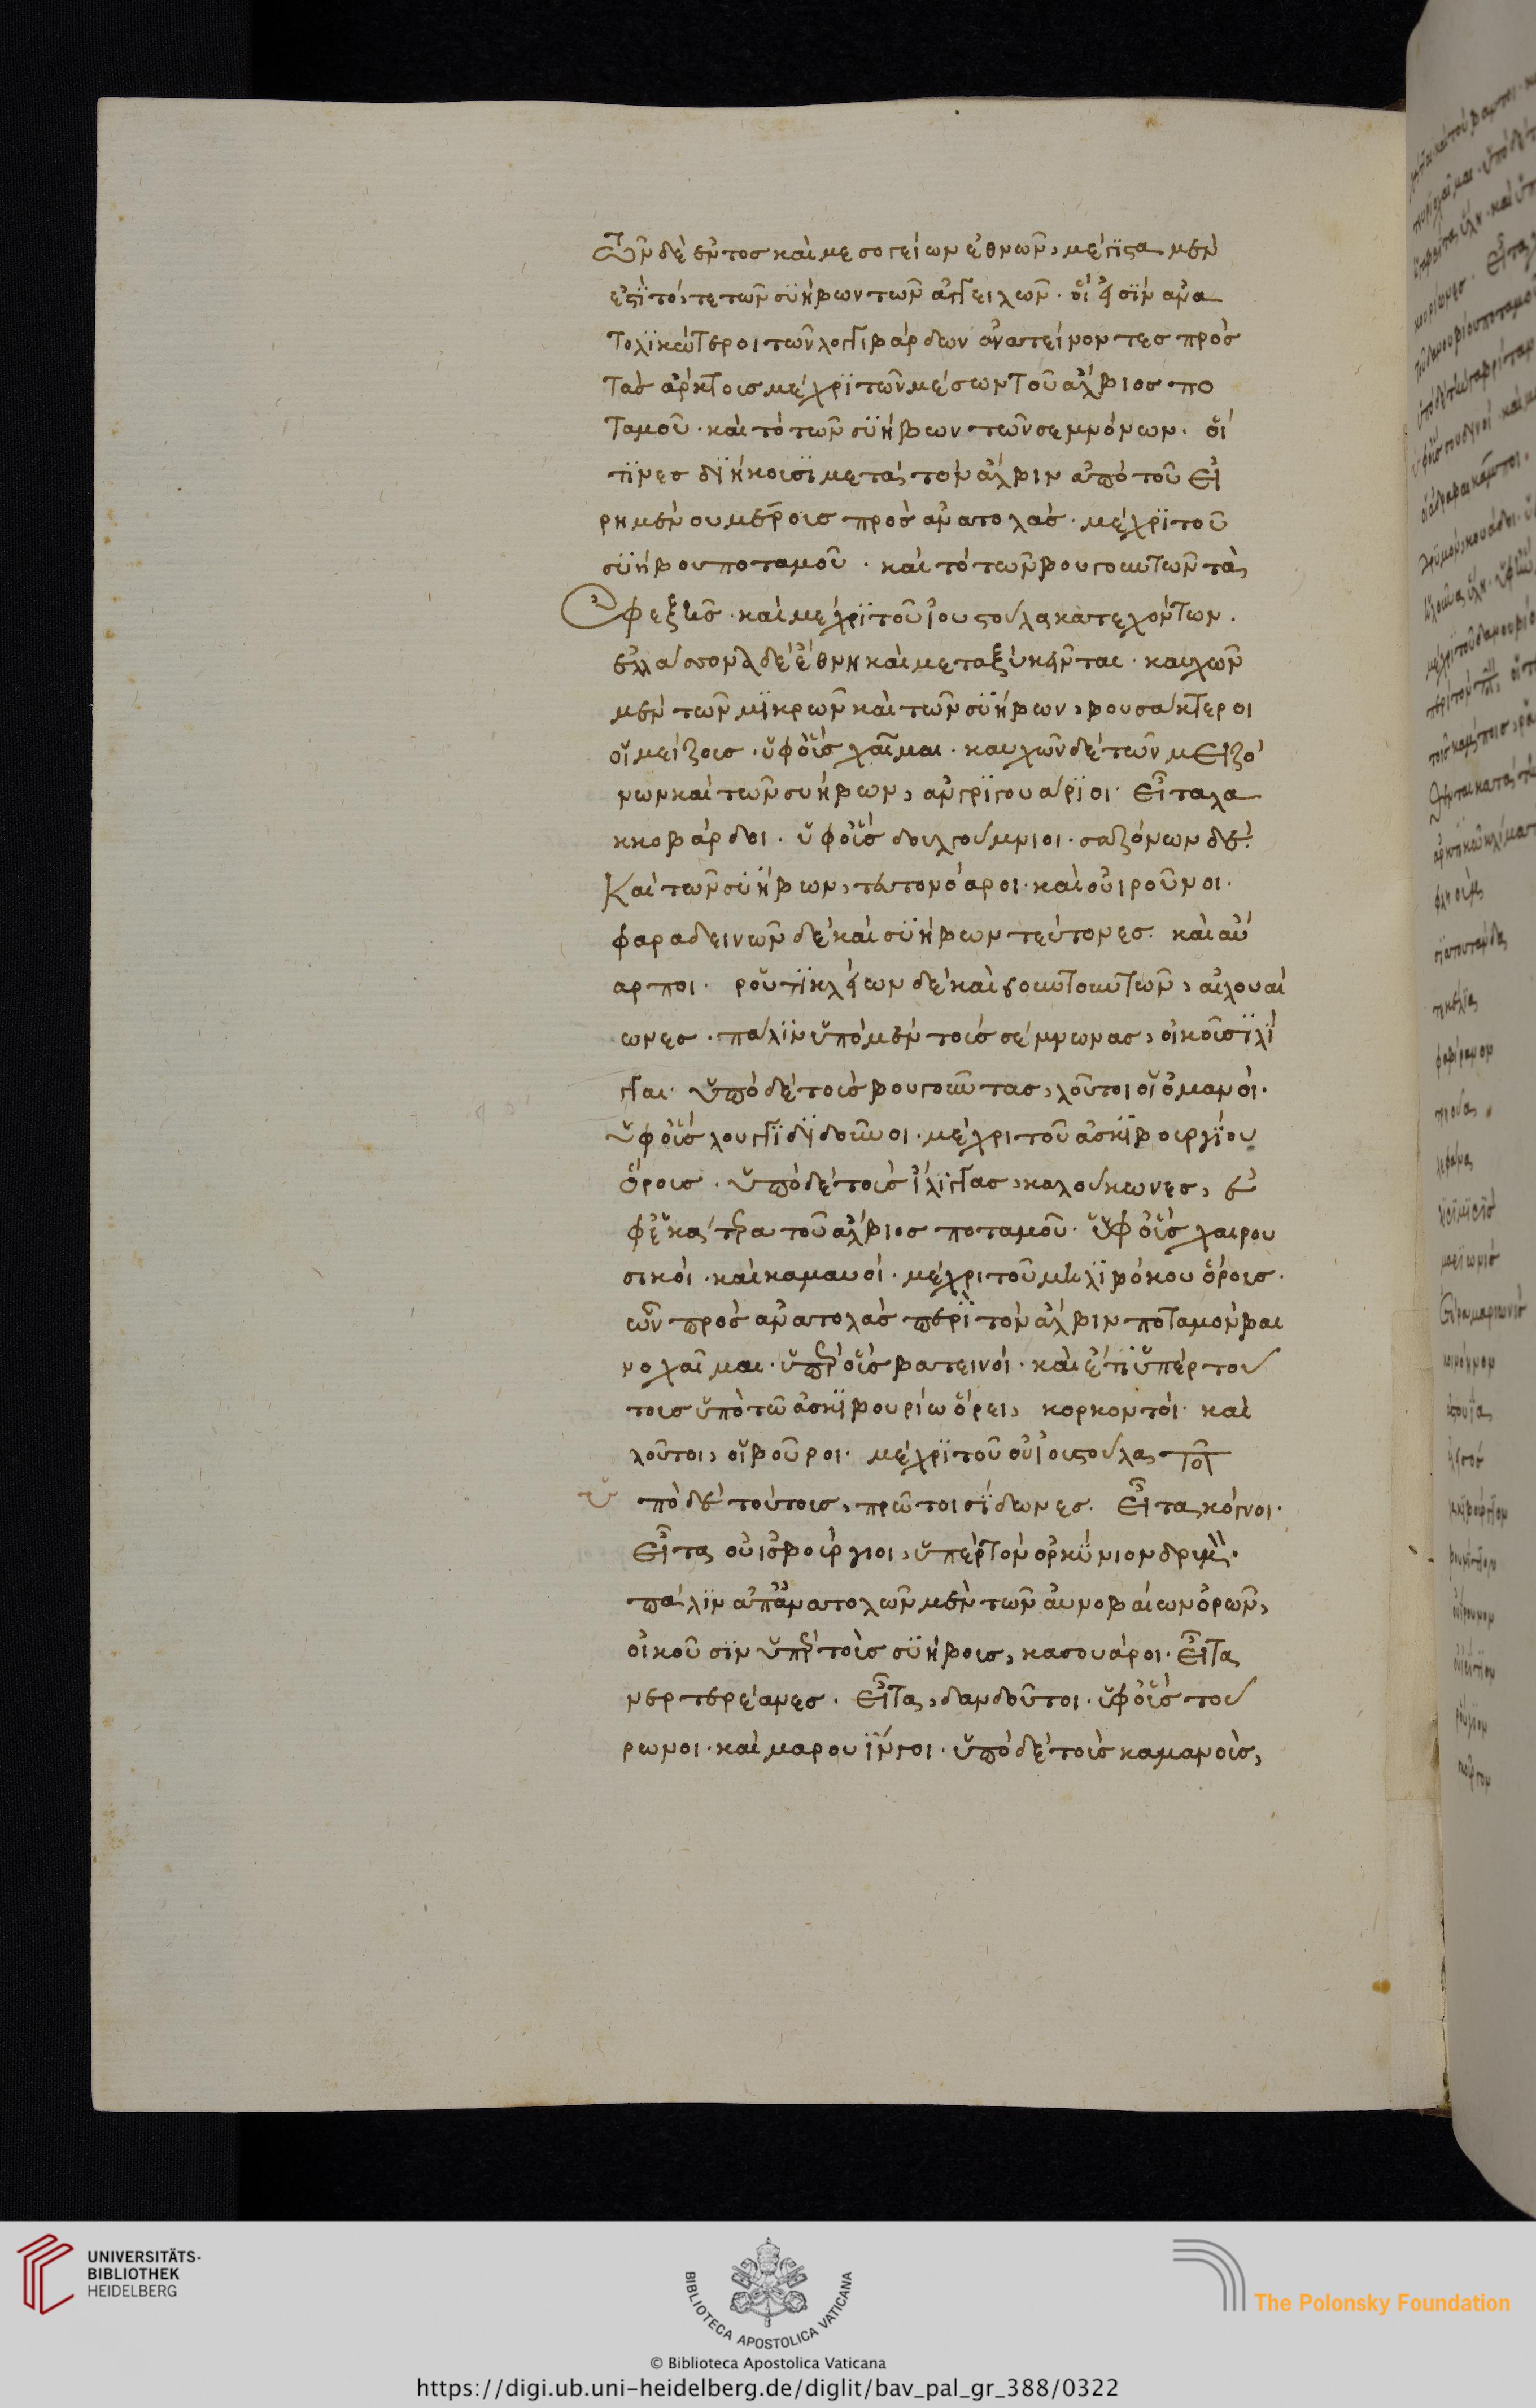 Τῶν δὲ ἐντὸς καὶ μεσογείων ἐθνῶν, μέγιστα μέν
ἐστὶ τό, τε τῶν συήβων τῶν ἀγγειλῶν· οἵ εἰσὶν ἀνα
τολικώτεροι τῶν λογγιβάρδων ἀνατείνοντες πρὸς
τὰς ἄρκτους μέχρι τῶν μέσων τοῦ ἄλβιος πο
ταμοῦ· καὶ τὸ τῶν συήβων τῶν σεμνόνων. οἵ
τινες διήκουσι μετὰ τὸν ἄλβιν ἀπὸ τοῦ εἰ
ρημένου μέρους πρὸς ἀνατολὰς· μέχρι τοῦ
συήβου ποταμοῦ · καὶ τὸ τῶν βουγουντῶν τὰ
ἐφεξῆς · καὶ μέχρι τοῦ ἰουστούλα κατεχόντων.
ἐλάσσονα δὲ ἔθνη καὶ μεταξὺ κεῖνται · καυχῶν
μὲν τῶν μικρῶν καὶ τῶν συήβων, βουσάκτεροι
οἱ μείζους · ὑφ οὓς χαῖμαι · καυχῶν δὲ τῶν μειζό
νων καὶ τῶν συήβων, ἀνγριουάριοι· εἶτα λα
κκοβάρδοι · ὑφ οὓς δουλγούμνιοι · σαξόνων δέ
Καὶ τῶν συήβων, τευτονόαροι· καὶ οὐιροῦνοι·
φαραδεινῶν δὲ καὶ συήβων τεύτονες· καὶ αὔ
αρποι· ρουτικλείων δὲ καὶ βουντουντῶν, αἰλουαί
ωνες · πάλιν ὑπὸ μὲν τοὺς σέμνωνας, οἰκοῦσι λί
γγαι· ὑπὸ δὲ τοὺς βουγούντας, λοῦτοι οἱ ὀμανοί·
ὑφ οὓς λουγγι διδοῦνοι · μέχρι τοῦ ἀσκιβουργίου
ὄρους · ὑπὸ δὲ τοὺς ἰλίγγας, καλούκωνες, ἐ
φ ἑκάτερα τοῦ ἄλβιος ποταμοῦ· ὑφ οὓς χαιρου
σικοὶ · καὶ καμαυοὶ · μέχρι τοῦ μηλιβόκου ὄρους ·
ὧν πρὸς ἀνατολὰς περὶ τὸν ἄλβιν ποταμὸν βαι
νοχαῖμαι · ὑπὲρ οὓς βατεινοί · καὶ ἔτι ὑπὲρ τού
τους ὑπὸ τῶ ἀσκιβουρίω ὄρει, κορκοντοί· καὶ
λοῦτοι, οἱ βοῦροι· μέχρι τοῦ οὐιουστούλα ποτ
ὑπὸ δὲ τούτους, πρῶτοι σίδωνες. Εἶτα κόγνοι·
Εἶτα οὐισβούργιοι, ὑπὲρ τὸν ὀρκύνιον δρυμὸν·
πάλιν ἀπ ἀνατολῶν μὲν τῶν ἀυνοβαίων ὀρῶν,
οἰκοῦσιν ὑπὲρ τοὺς συήβους, κασουάροι· Εἶτα
νερτερέανες · Εἶτα, δανδοῦτοι · ὑφ οὓς τού
ρωνοι · καὶ μαρουίνγοι · ὑπὸ δὲ τοὺς καμανοὺς,
UNIVERSITÄTS-
BIBLIOTHEK
HEIDELBERG
BIBLIOTECA APOSTOLICA VATICANA
The Polonsky Foundation
© Biblioteca Apostolica Vaticana
https://digi.ub.uni-heidelberg.de/diglit/bav_pal_gr_388/0322